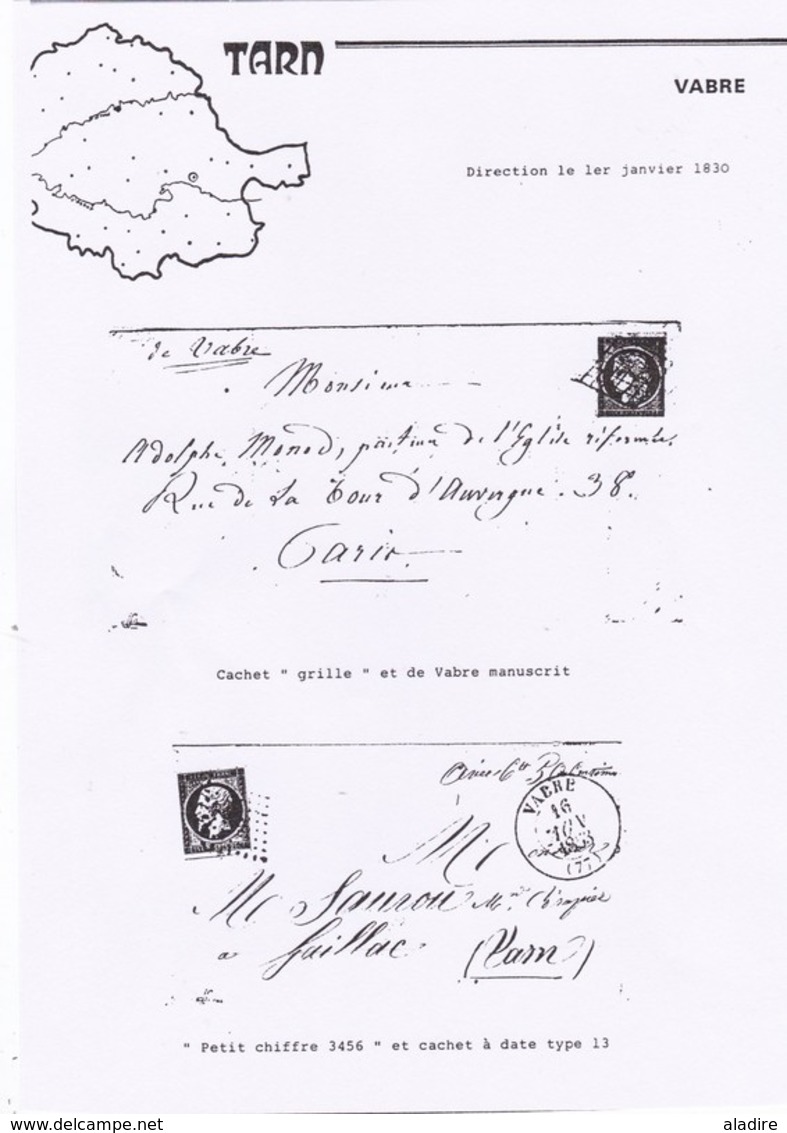 TARN
VABRE
Direction le 1er janvier 1830
de Vabre
Monsieur
Adolphe Monod, pasteur de l'Eglise réformée.
Rue de La Tour d'Auvergne . 38.
Paris.
Cachet " grille " et de Vabre manuscrit
VABRE
16
(77)
Mr
Mr Saurou Md
à Gaillac (Tarn)
" Petit chiffre 3456 " et cachet à date type 13
delcampe.net
aladire